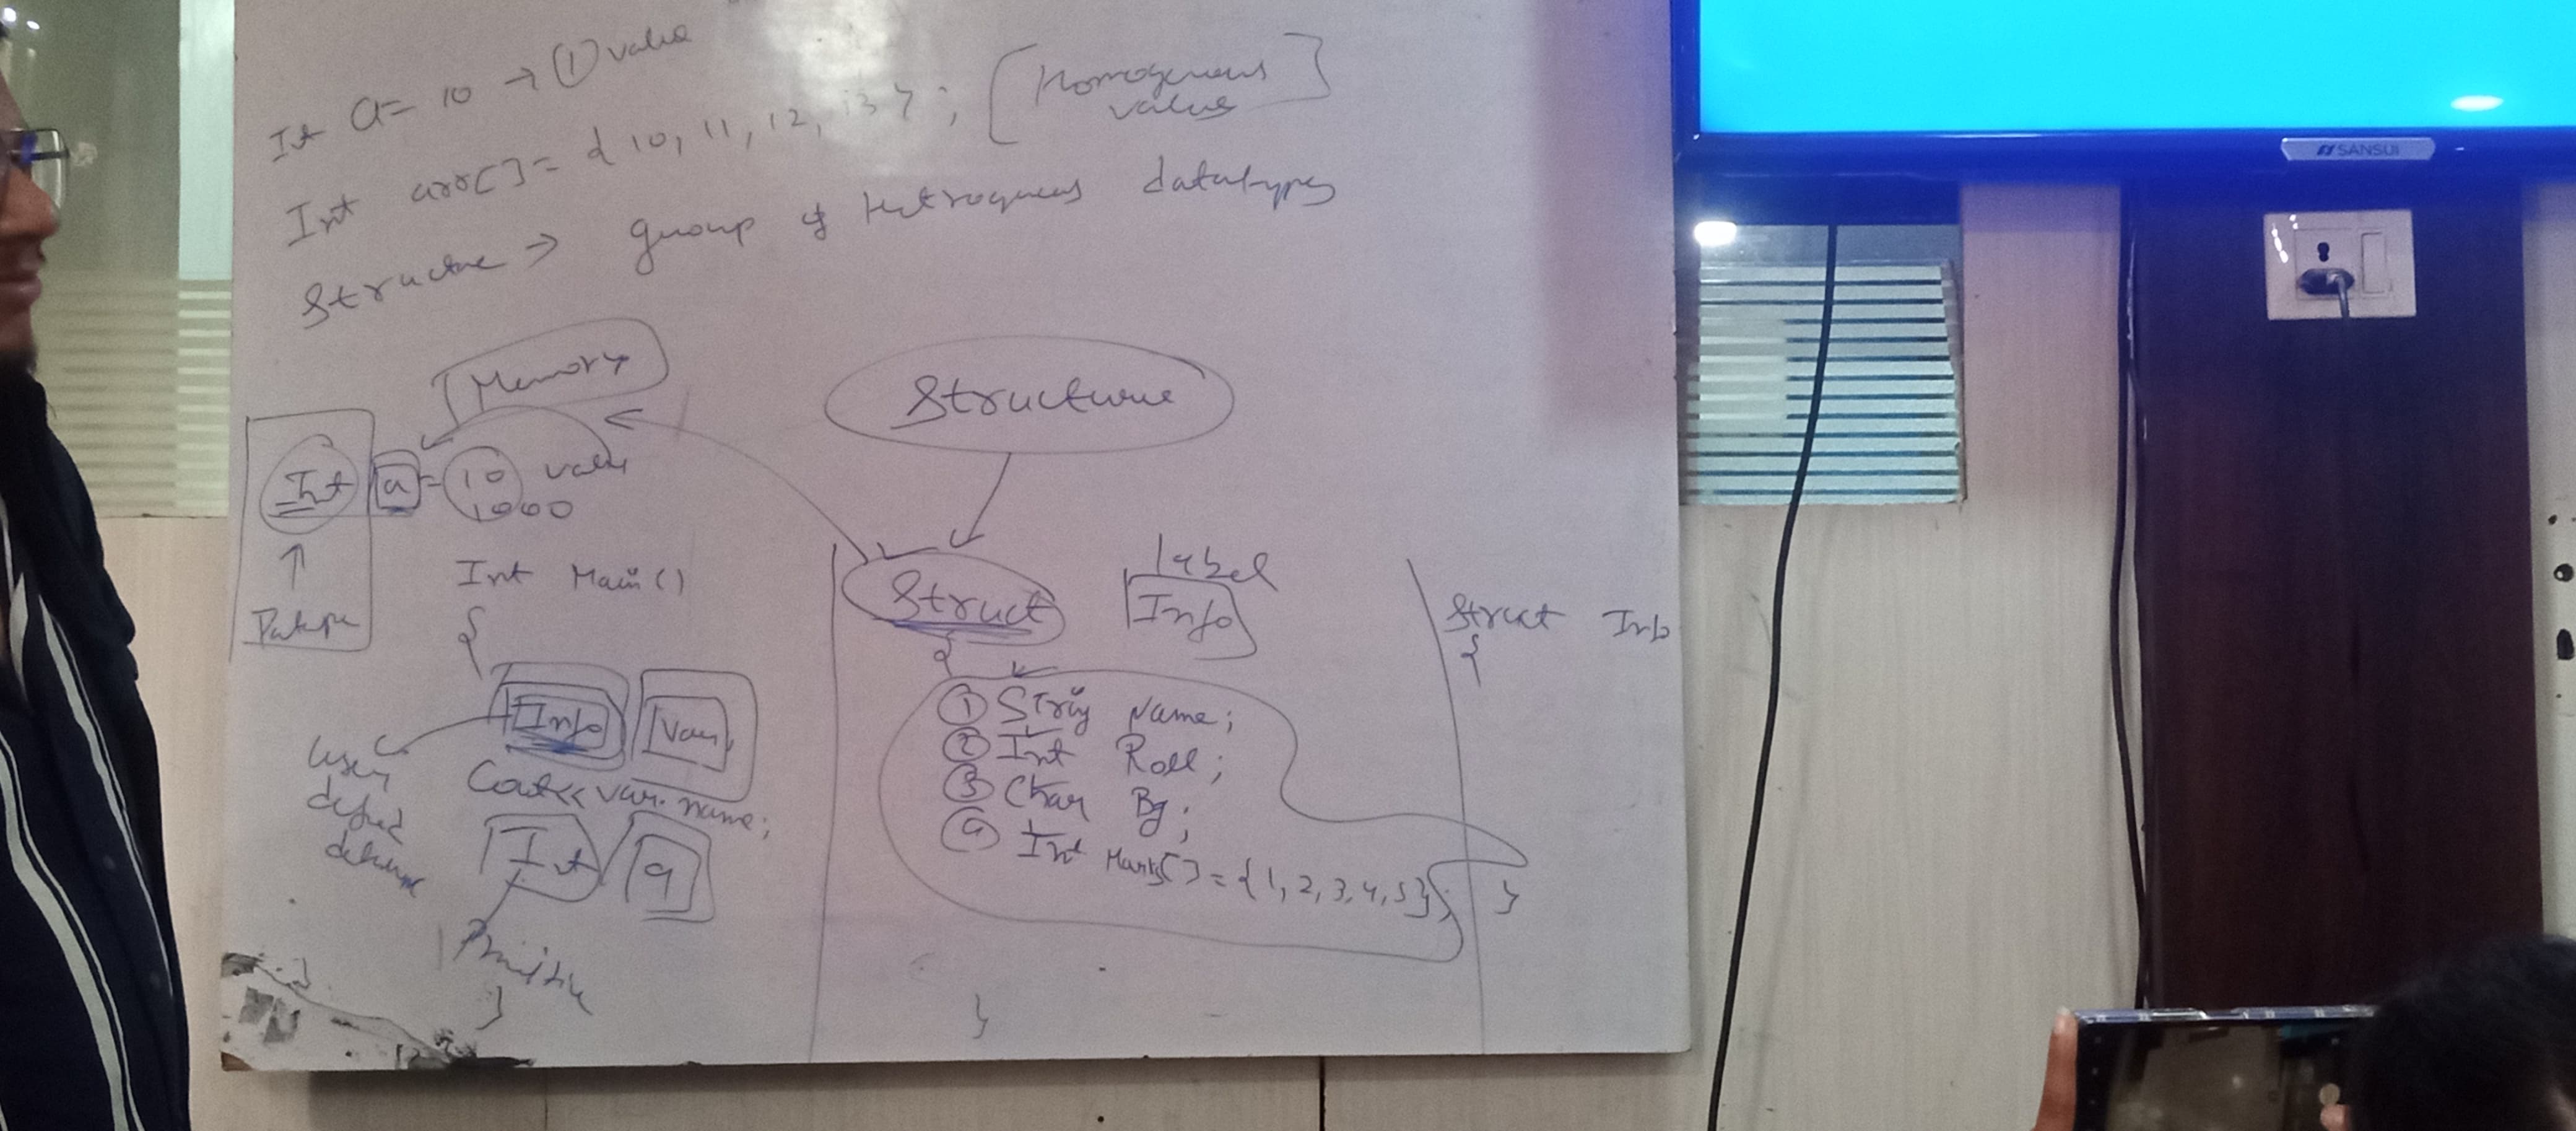 Int a = 10 → ① value
Int arr[] = { 10, 11, 12, 13 } ; [ Homogeneous
value ]
Structure → group of Hetrogneous datatypes
Memory
Structure
Int a = 10 value
1000
Datatype
Int Main()
{
Info Var,
User
defined
Cout<< var.name;
Int a
Primitive
}
Struct
label
Info
{
① String Name;
② Int Roll;
③ Char Bg;
④ Int Marks[] = {1, 2, 3, 4, 5};
}
Struct Info
{
}
SANSUI